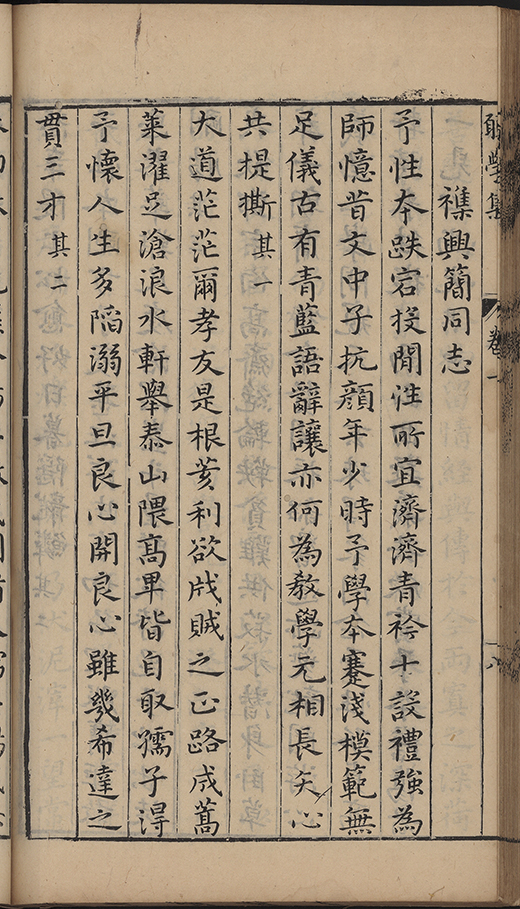 襍興簡同志
予性本跌宕投閒性所宜濟濟青衿士設禮強為
師憶昔文中子抗顏年少時予學本蹇淺模範無
足儀古有青藍語辭讓亦何為敎學元相長矢心
共提撕其一
大道茫茫爾孝友是根荄利欲戕賊之正路成蒿
萊濯足滄浪水軒舉泰山隈髙卑皆自取孺子淂
予懷人生多陷溺平旦良心開良心雖幾希達之
貫三才其二
學集
卷一